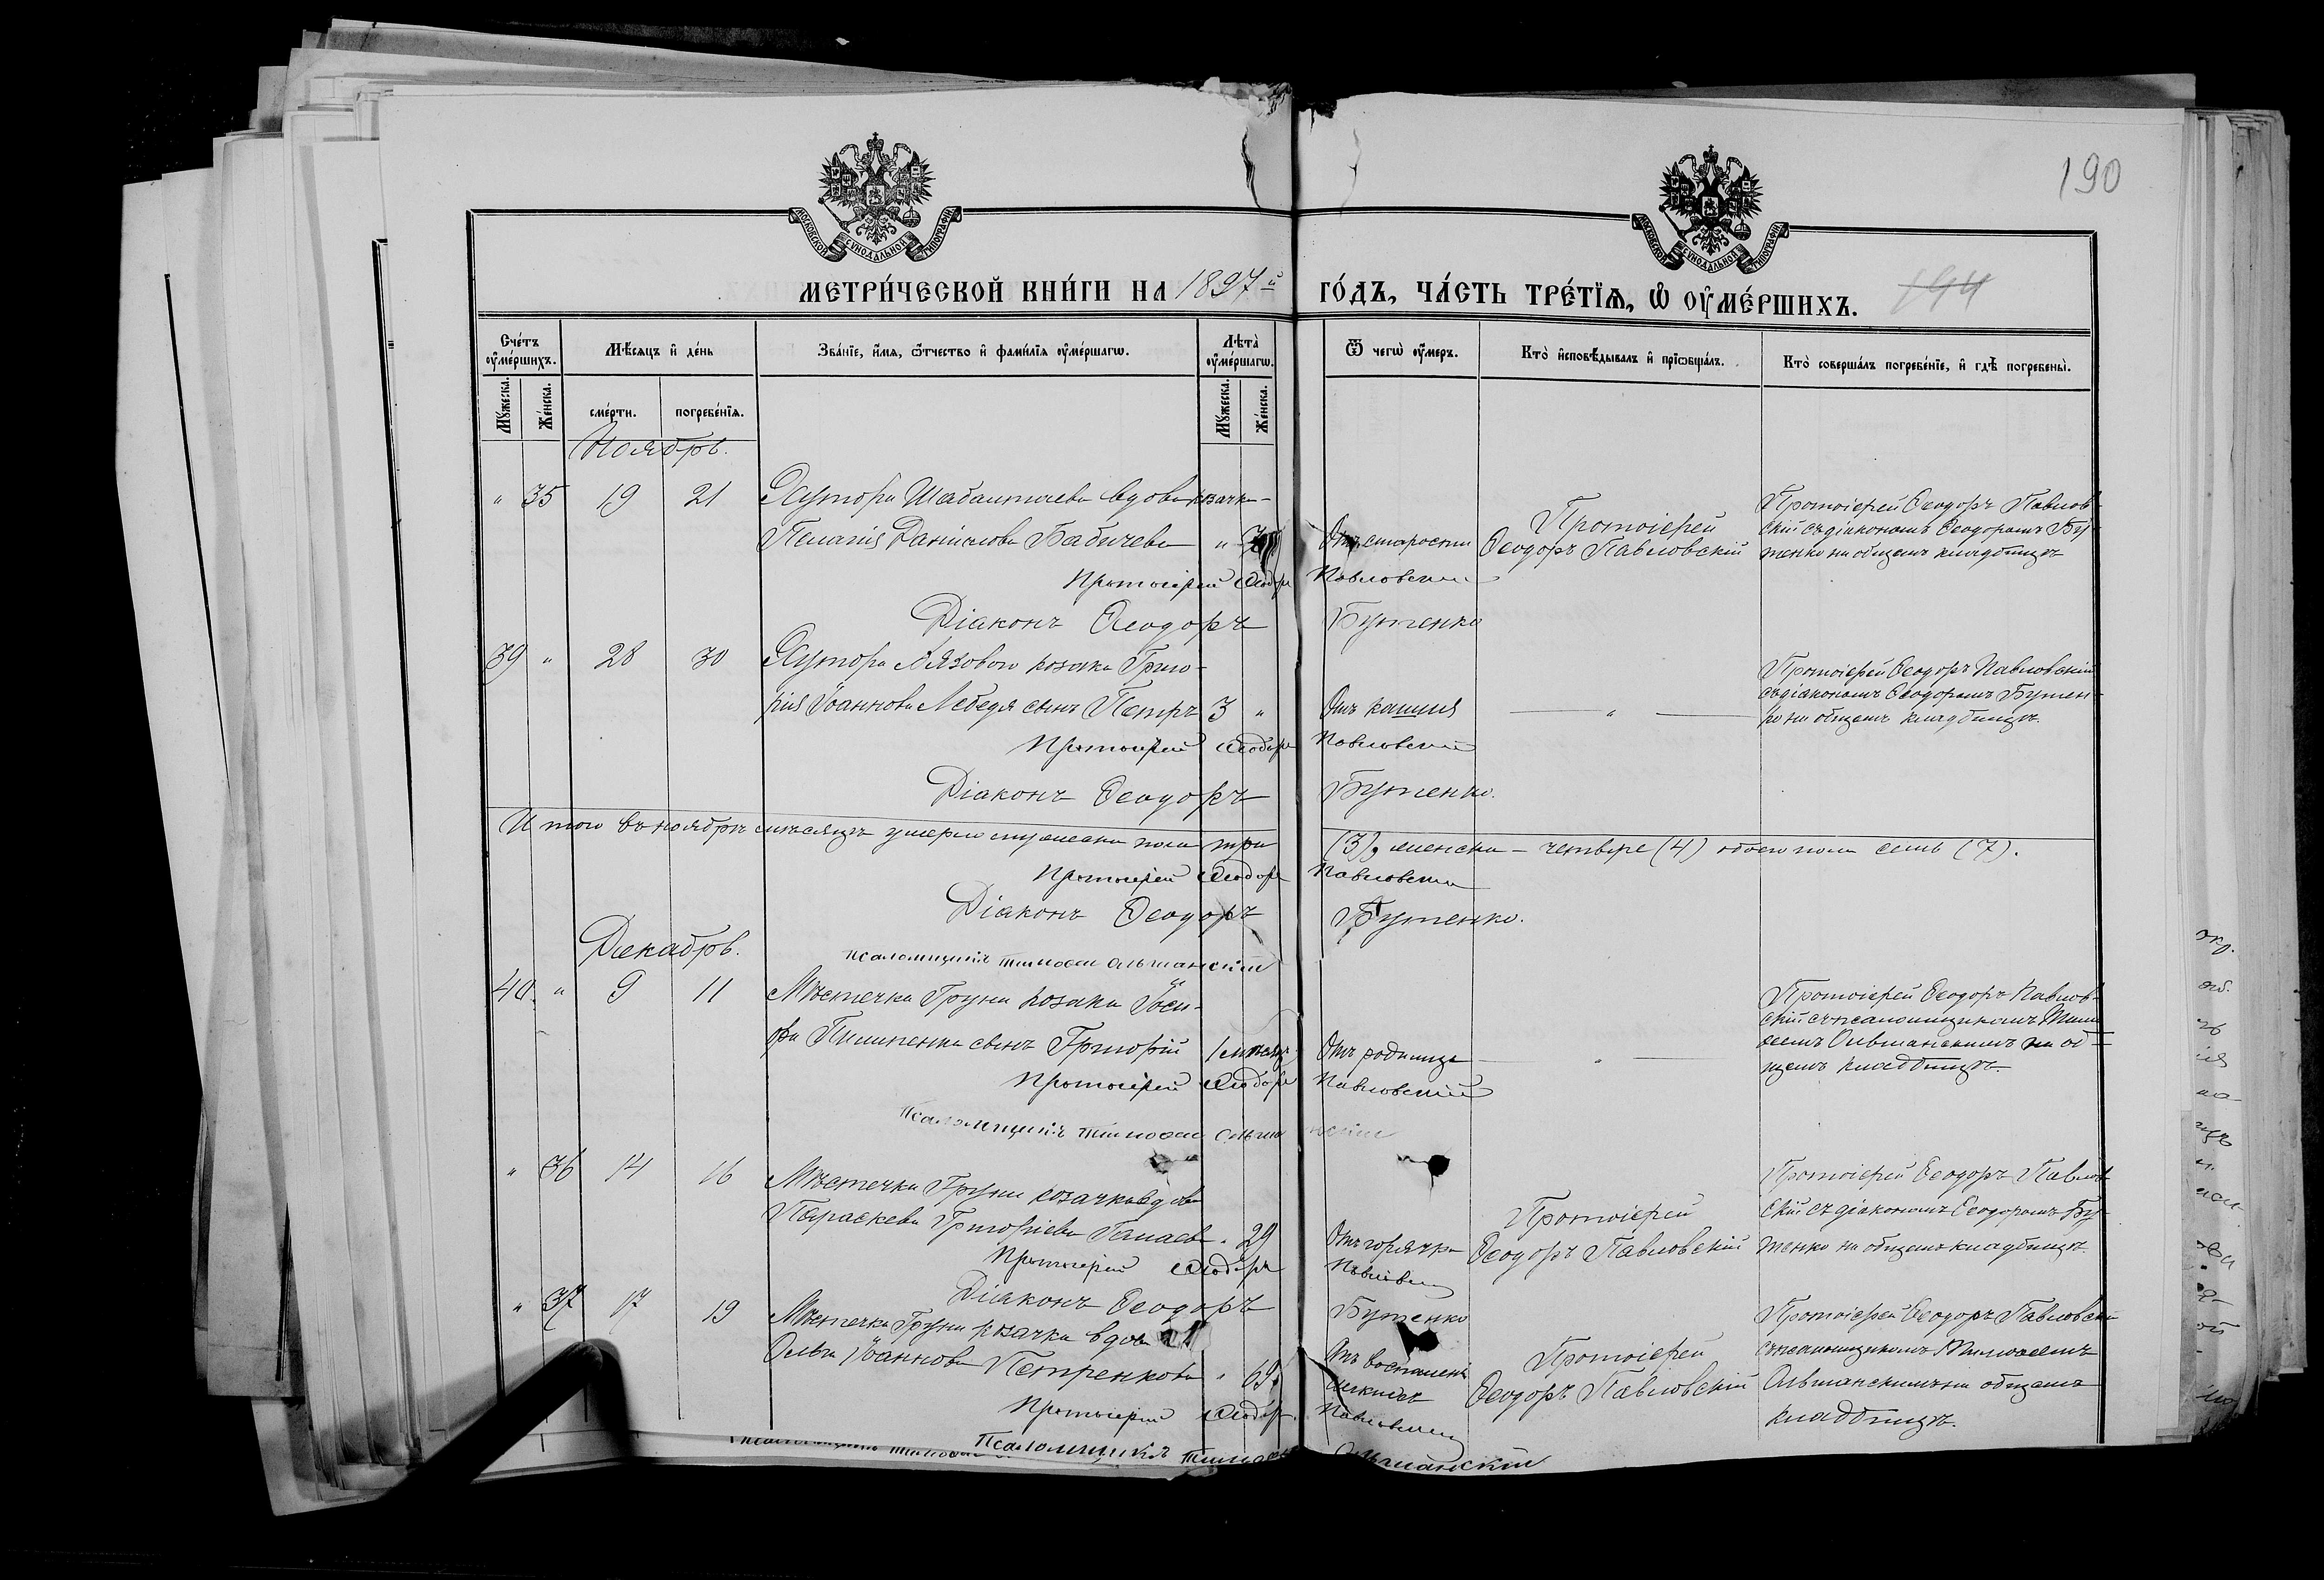 190
МОСКОВСКОЙ СѴНОДАЛЬНОЙ ТИПОГРАФІИ
МОСКОВСКОЙ СѴНОДАЛЬНОЙ ТИПОГРАФІИ
МЕТРИ́ЧЕСКОЙ КНИ́ГИ НА 1897й ГО́ДЪ, ЧА́СТЬ ТРЕ́ТЇѦ, Ѡ ОУМЕ́РШИХЪ. 194
Сче́тъ оумершихъ.
Мѣ́сяцъ и де́нь
Зва́нїе, и́мя, ѿтчество и фами́лїя оуме́ршагѡ.
Лѣта̀ оуме́ршагѡ.
Ѿ чегѡ оумеръ.
Кто̀ исповѣ́дывалъ и прїѡбща́лъ.
Кто̀ соверша́лъ погребе́нїе, и гдѣ̀ погребены̀.
Мꙋжеска.
Же́нска.
сме́рти.
погребе́нїя.
Мꙋжеска.
Же́нска.
Ноябрь.
" 35 19 21 Хутора вдова козачка
Пелагія Данилова Бабичева "
Отъ старости
Протоіерей
Ѳеодоръ Павловскій
Протоіерей Ѳеодоръ Павлов-
скій съ діакономъ Ѳеодоромъ Бу-
тенко на общемъ кладбищѣ
Протоіерей Ѳеодоръ Павловскій
Діаконъ Ѳеодоръ Бутенко
39 " 28 30 Хутора козака Григо-
рія Іоаннова Лебедя сынъ Петръ 3 "
Отъ кашля
"
Протоіерей Ѳеодоръ Павловскій
съ діакономъ Ѳеодоромъ Бутен-
ко на общемъ кладбищѣ.
Протоіерей Ѳеодоръ Павловскій
Діаконъ Ѳеодоръ Бутенко.
Итого въ ноябрѣ мѣсяцѣ умерло мужеска пола три (3), женска – четыре (4) обоего пола семь (7).
Протоіерей Ѳеодоръ Павловскій
Діаконъ Ѳеодоръ Бутенко.
Псаломщикъ Тимоѳей Ольшанскій
Декабрь.
40. " 9 11 Мѣстечка Груни козака
Пилипенка сынъ Григорій 1 мѣсяц.
Отъ родимца
"
Протоіерей Ѳеодоръ Павлов-
скій съ псаломщикомъ Тимо-
ѳеемъ Ольшанскимъ на об-
щемъ кладбищѣ.
Протоіерей Ѳеодоръ Павловскій
Псаломщикъ Тимоѳей Ольшанскій
" 36 14 16 Мѣстечка Груни козачка вдова
Параскева Григоріева " 29
Отъ горячки
Протоіерей
Ѳеодоръ Павловскій
Протоіерей Ѳеодоръ Павлов-
скій съ діакономъ Ѳеодоромъ Бу-
тенко на общемъ кладбищѣ
Протоіерей Ѳеодоръ Павловскій
Діаконъ Ѳеодоръ Бутенко
" 37 17 19 Мѣстечка Груни козачка вдова
Ольга Іоаннова Петренкова " 69
Отъ воспаленія
Протоіерей
Ѳеодоръ Павловскій
Протоіерей Ѳеодоръ Павловскій
съ псаломщикомъ Тимоѳеемъ
Ольшанскимъ на общемъ
кладбищѣ.
Протоіерей Ѳеодоръ Павловскій
Псаломщикъ Тимоѳей Ольшанскій